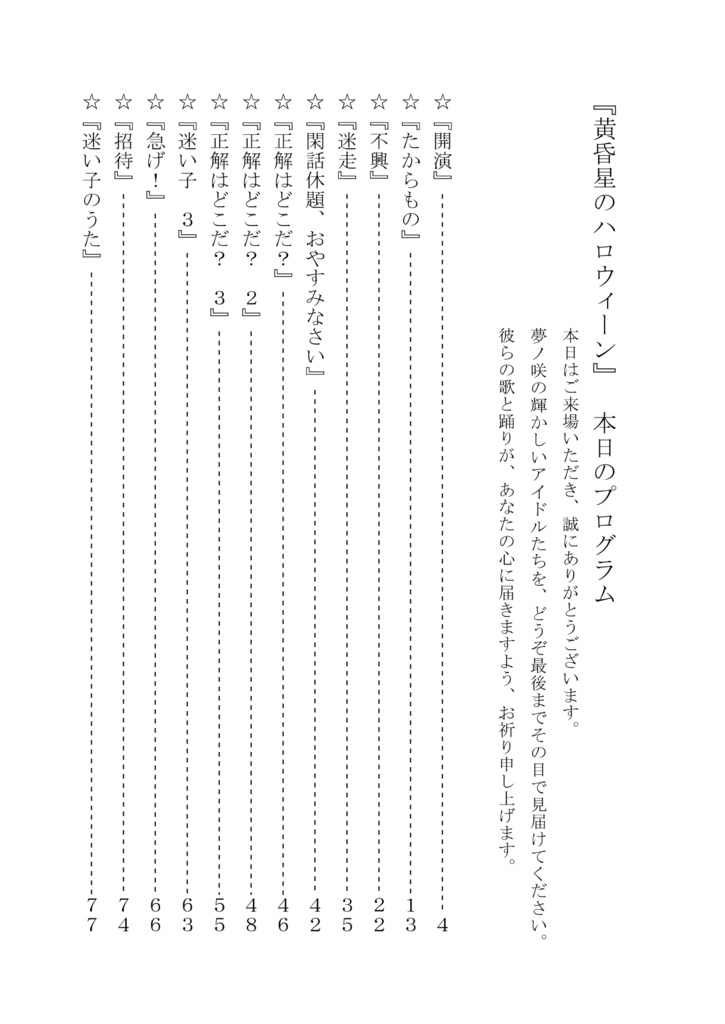 『黄昏星のハロウィーン』 本日のプログラム
本日はご来場いただき、誠にありがとうございます。
夢ノ咲の輝かしいアイドルたちを、どうぞ最後までその目で見届けてください。
彼らの歌と踊りが、あなたの心に届きますよう、お祈り申し上げます。
☆『開演』---------- 4
☆『たからもの』---------- 13
☆『不興』---------- 22
☆『迷走』---------- 35
☆『閑話休題、おやすみなさい』---------- 42
☆『正解はどこだ?』---------- 46
☆『正解はどこだ? 2』---------- 48
☆『正解はどこだ? 3』---------- 55
☆『迷い子 3』---------- 63
☆『急げ!』---------- 66
☆『招待』---------- 74
☆『迷い子のうた』---------- 77